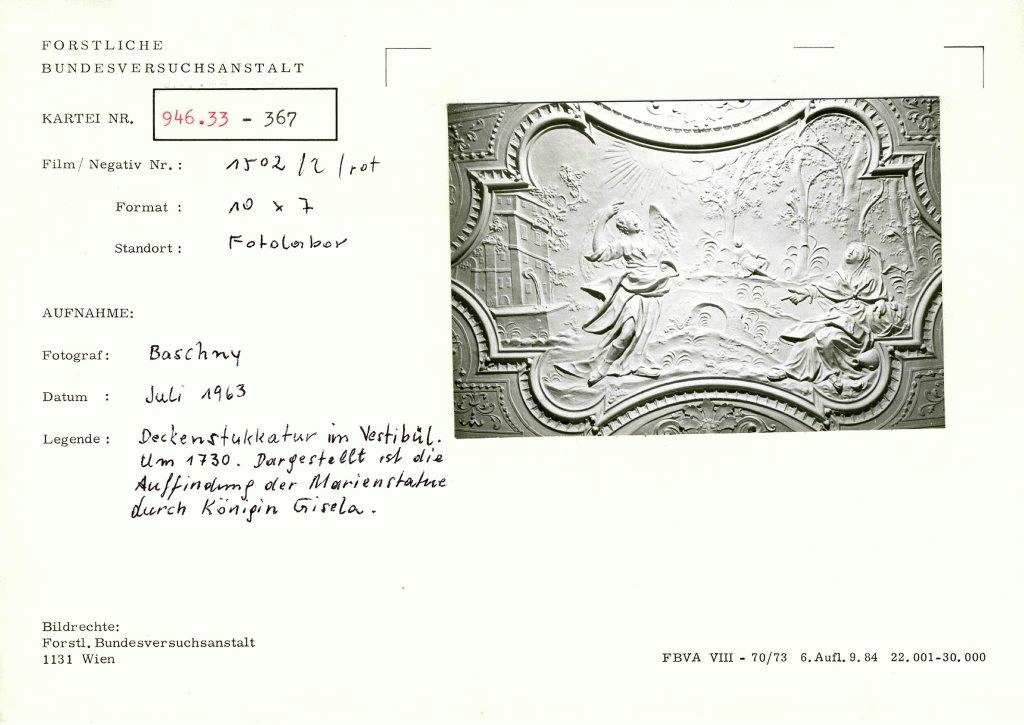 FORSTLICHE
BUNDESVERSUCHSANSTALT
KARTEI NR. 946.33 - 367
Film/Negativ Nr.: 1502/2/rot
Format : 10 x 7
Standort : Fotolabor
AUFNAHME:
Fotograf: Baschny
Datum : Juli 1963
Legende : Deckenstukkatur im Vestibül.
Um 1730. Dargestellt ist die
Auffindung der Marienstatue
durch Königin Gisela.
Bildrechte:
Forstl. Bundesversuchsanstalt
1131 Wien
FBVA VIII - 70/73 6. Aufl. 9. 84 22.001-30.000